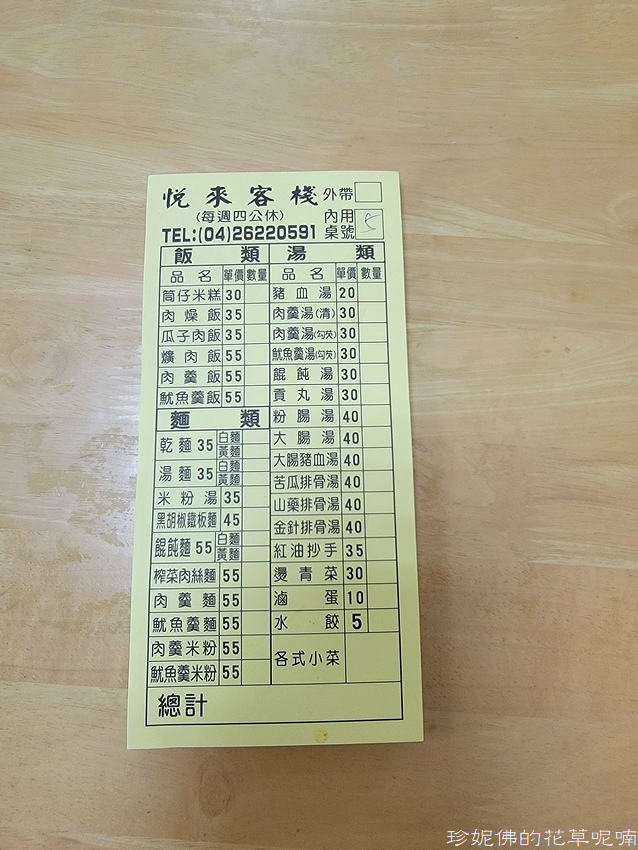 悅來客棧 外帶
(每週四公休) 內用
TEL:(04)26220591 桌號 5
飯類
品名 單價 數量
筒仔米糕 30
肉燥飯 35
瓜子肉飯 35
爌肉飯 55
肉羹飯 55
魷魚羹飯 55
麵類
乾麵 35 白麵 黃麵
湯麵 35 白麵 黃麵
米粉湯 35
黑胡椒鐵板麵 45
餛飩麵 55 白麵 黃麵
榨菜肉絲麵 55
肉羹麵 55
魷魚羹麵 55
肉羹米粉 55
魷魚羹米粉 55
湯類
品名 單價 數量
豬血湯 20
肉羹湯(清) 30
肉羹湯(勾芡) 30
魷魚羹湯(勾芡) 30
餛飩湯 30
貢丸湯 30
粉腸湯 40
大腸湯 40
大腸豬血湯 40
苦瓜排骨湯 40
山藥排骨湯 40
金針排骨湯 40
紅油抄手 35
燙青菜 30
滷蛋 10
水餃 5
各式小菜
總計
珍妮佛的花草呢喃